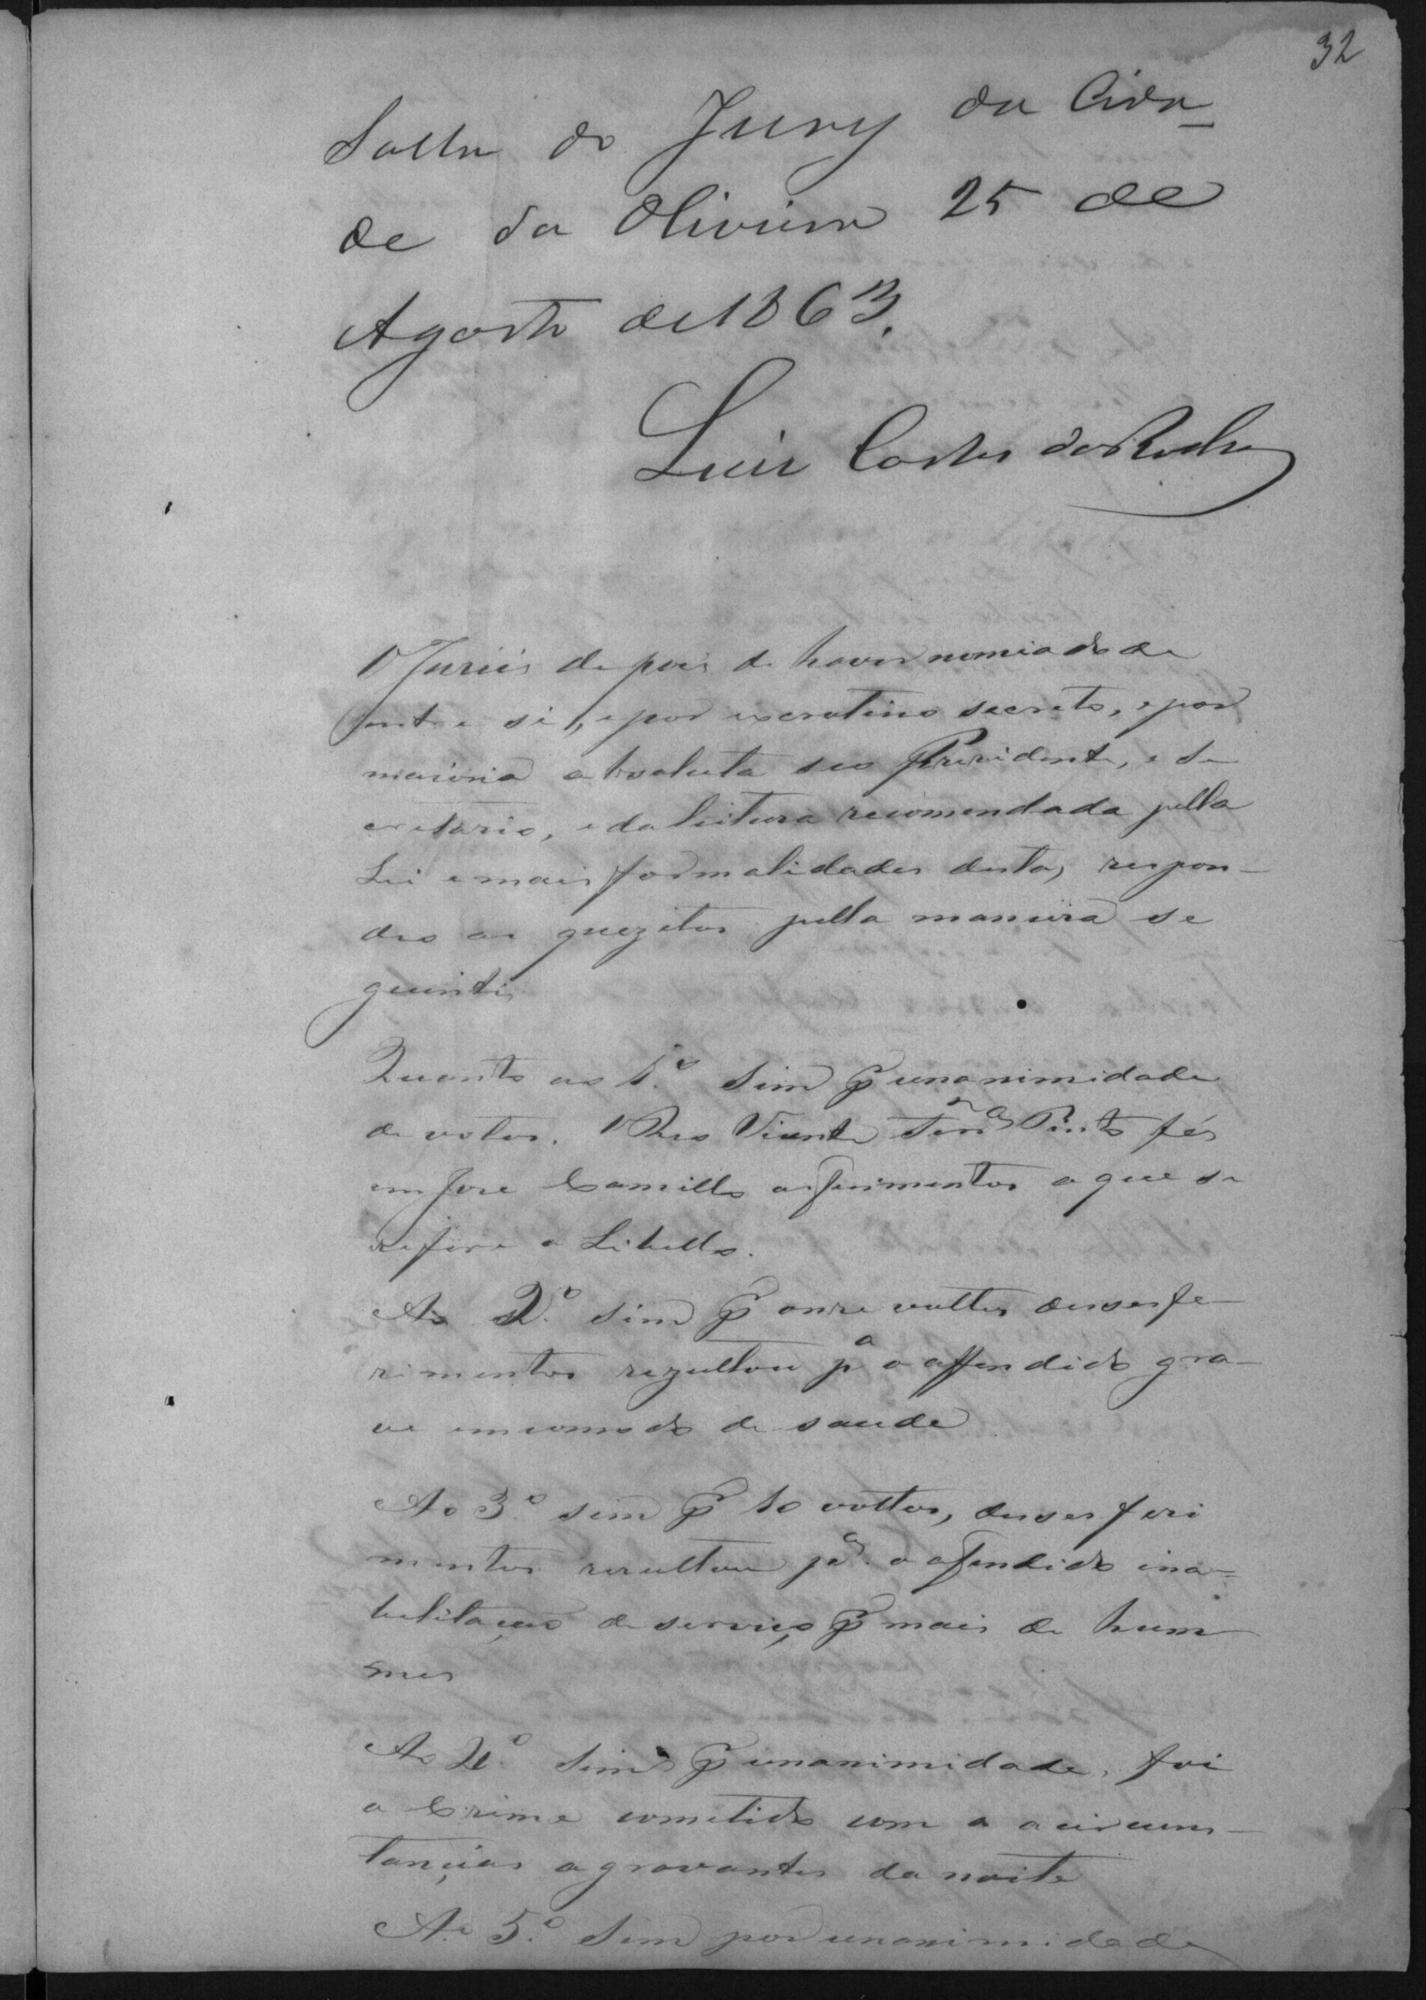 32
Salla do Jury da Cida
de da Oliveira 25 de
Agosto de 1863.
Luis Costa da Rocha
O Juriis depois de haver nomiado de
entre si, e por escrotino secreto, e por
maioria absoluta seo Prezidente, e se
cretario, e da leitura recomendada pella
Lei e mais formalidades desta, respon-
deo os quezitos pella maneira se
guinte
Quanto ao 1.º Sim p unanimidade
de votos. O Reo Vicente Pinto fes
em Jose Camillo os ferimentos a que se
refere o Libello.
Ao 2.º sim p onze vottos desses fe-
rimentos rezultou pª o offendido gra-
ve emcomodo de saude
Ao 3.º sim p 10 vottos, desses feri
mentos resultou pª o ofendido ina-
belitação de serviço p mais de hum
mes
Ao 4.º Sim p unanimidade, foi
o Crime cometido com a a circuns-
tancias agravantes da noite
Ao 5.º Sim por unanimidade